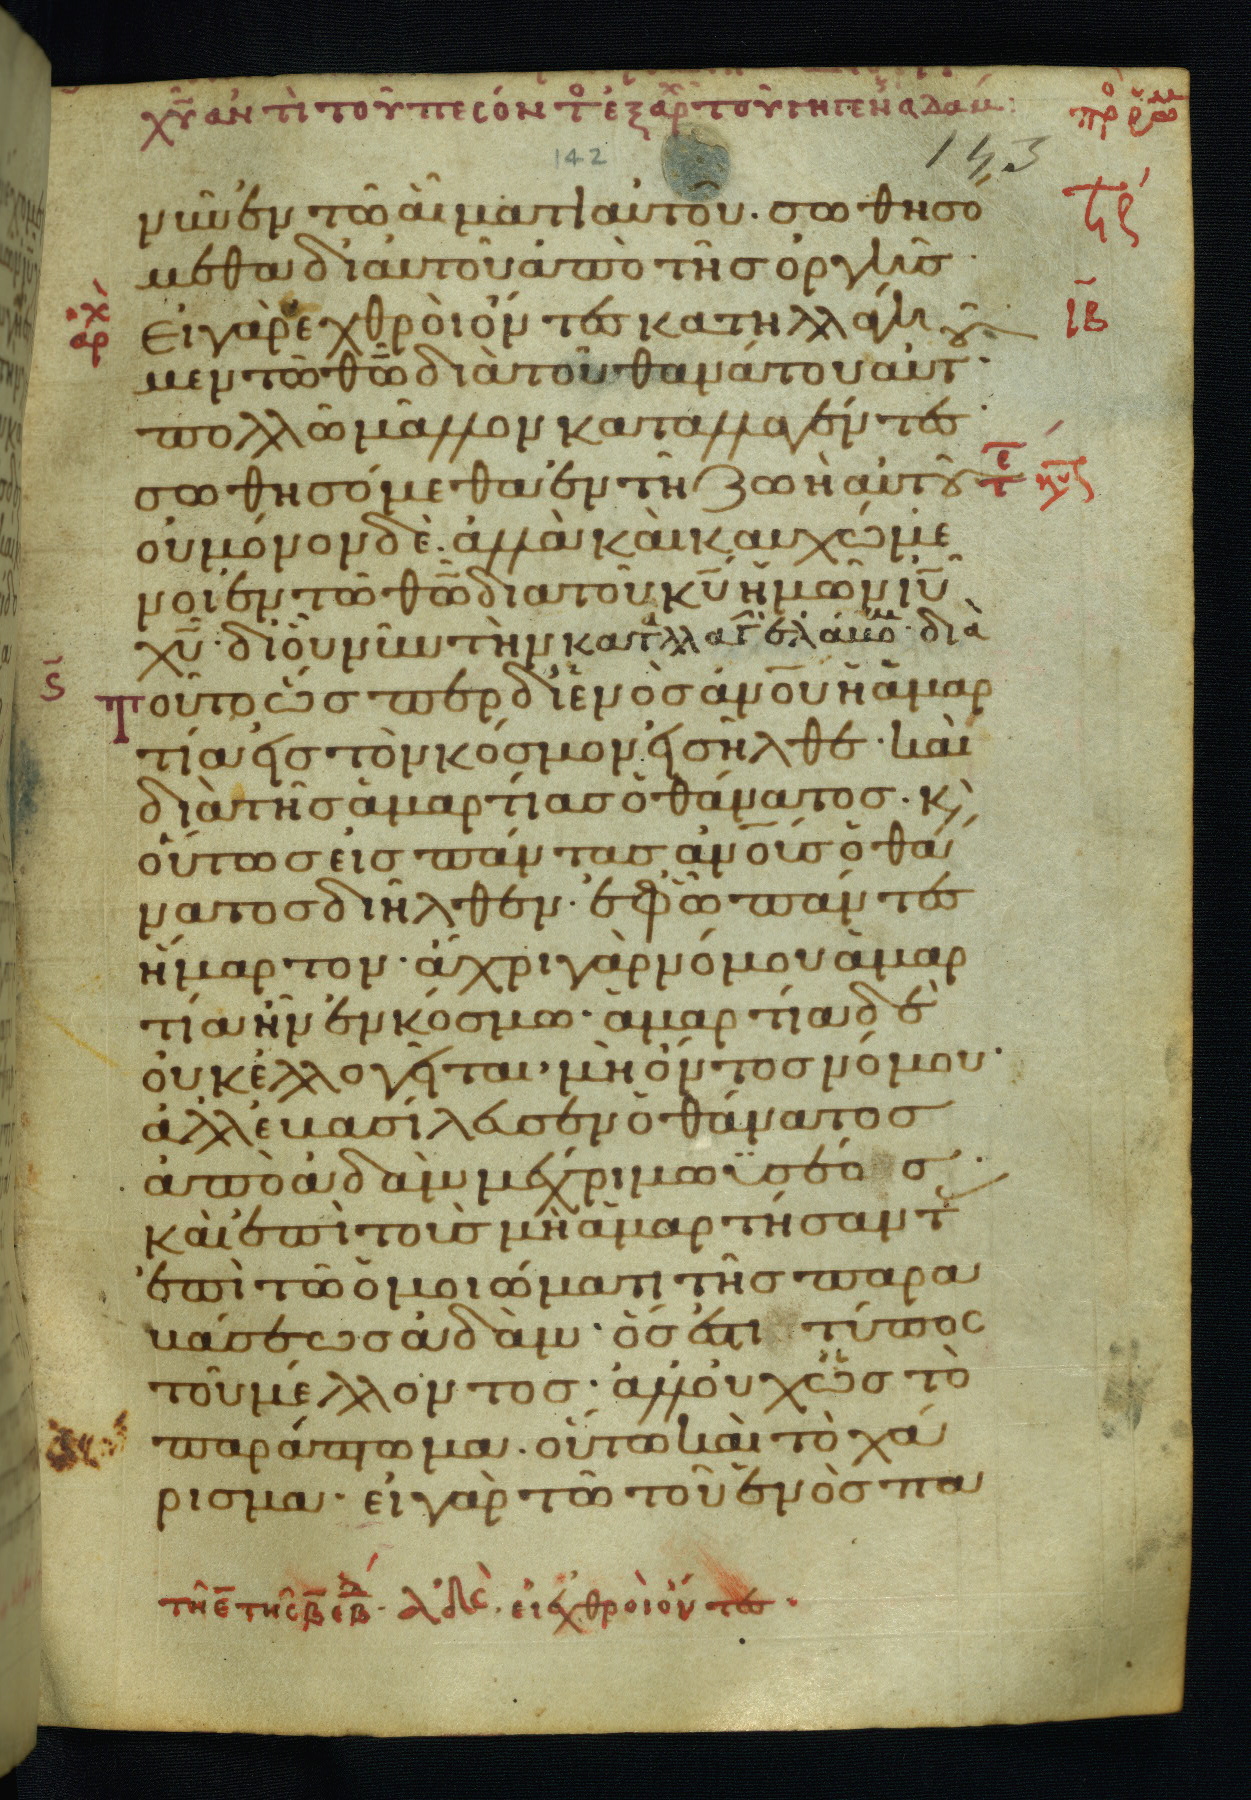 χῦ ἀντὶ τοῦ πεσόντος ἐξ ἀρ τοῦ γηγενῆ ἀδάμ:
πρ ρω
142
143
νῦν ἐν τῶ αἵματι αὐτοῦ. σωθησό
μεθα δι αὐτοῦ ἀπὸ τῆς ὀργῆς.
ἀρχ
Εἰ γὰρ ἐχθροὶ ὄντες κατηλλάγη
ιβ
μεν τῶ θῶ διὰ τοῦ θανάτου αὐτ.
πολλῶ μᾶλλον καταλλαγέντες
σωθησόμεθα ἐν τῆ ζωῆ αὐτοῦ
οὐ μόνον δὲ. ἀλλὰ καὶ καυχώμε
νοι ἐν τῶ θῶ δια τοῦ κῦ ἡμῶν ἰῦ
χῦ. δι οὗ νῦν τὴν καταλλαγ ἐλάβομ. διὰ
ς
Τοῦτο ὥσπερ δι ἑνὸς ἀνοῦ ἡ ἁμαρ
τία εἰς τὸν κόσμον εἰσῆλθε. καὶ
διὰ τῆς ἁμαρτίας ὁ θάνατος. κ
οὕτως εἰς πάντας ἀνοῖς ὁ θά
νατος διῆλθεν. ἐφ ὧ πάντες
ἥμαρτον. ἄχρι γὰρ νόμου ἁμαρ
τία ἦν ἐν κόσμω. ἁμαρτία δὲ
οὐκ ἐλλογεῖται. μὴ ὄντος νόμου.
ἀλλ ἐβασίλευσεν ὁ θάνατος
ἀπὸ ἀδὰμ μέχρι μωϋσέο ς.
καὶ ἐπὶ τοὺς μὴ ἁμαρτήσαντ
ἐπὶ τῶ ὁμοιώματι τῆς παρα
βάσεως ἀδὰμ. ὅς ἐστι τύπος
τοῦ μέλλοντος. ἀλλ οὐχ ὡς τὸ
παράπτωμα. οὕτω καὶ τὸ χά
ρισμα. εἰ γὰρ τῶ τοῦ ἑνὸς πα
τῆ ε τῆς β εβ. ἀδε. εἰ ἐχθροὶ ὄντες.